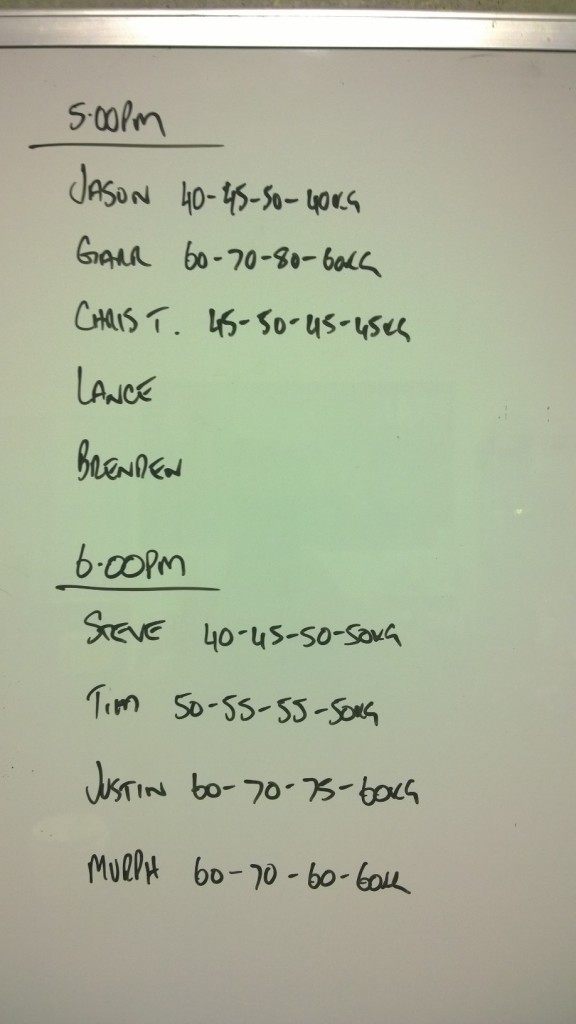 5.00PM
JASON 40-45-50-40KG
GARR 60-70-80-60KG
CHRIS T. 45-50-45-45KG
LANCE
BRENDEN
6.00PM
STEVE 40-45-50-50KG
TIM 50-55-55-50KG
JUSTIN 60-70-75-60KG
MURPH 60-70-60-60KG